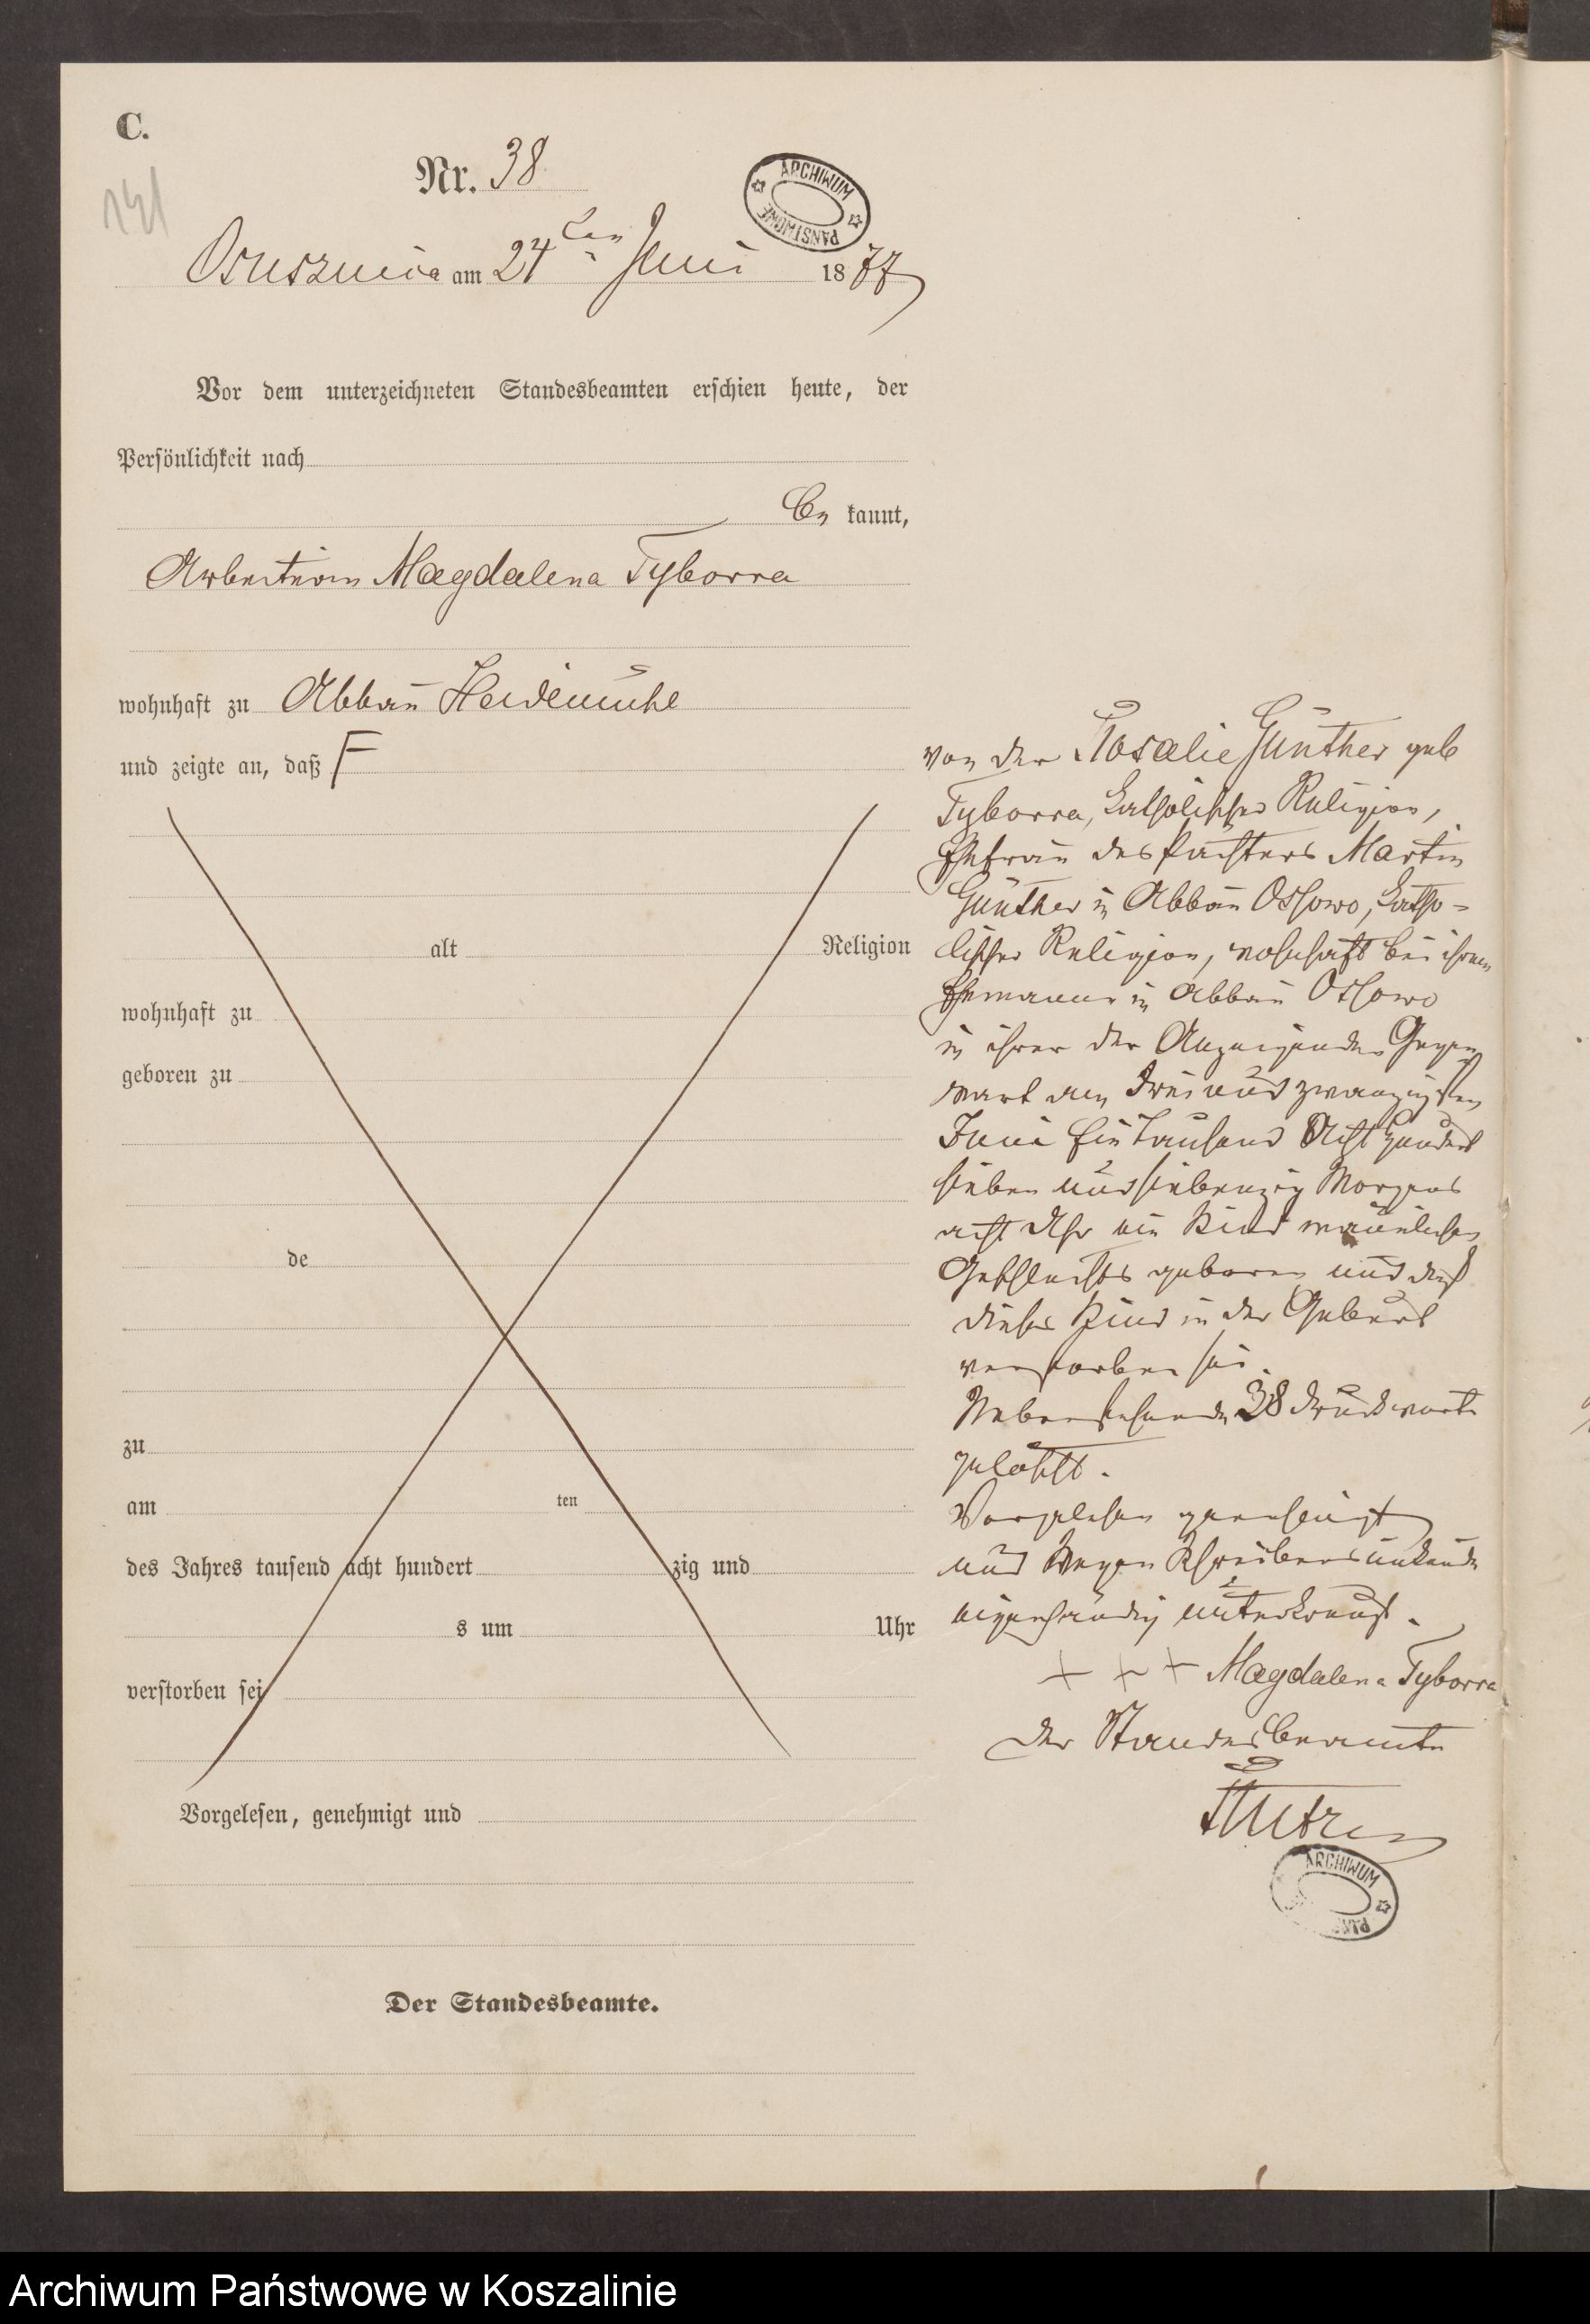 C.
Nr. 38
141
ARCHIWUM PAŃSTWOWE
Osusznica am 24ten Juni 1877
Vor dem unterzeichneten Standesbeamten erschien heute, der
Persönlichkeit nach
be kannt,
Arbeiterin Magdalena Tyborra
wohnhaft zu Abbau Heidemühl
und zeigte an, daß F
alt Religion
wohnhaft zu
geboren zu
de
zu
am ten
des Jahres tausend acht hundert zig und
s um Uhr
verstorben sei
Vorgelesen, genehmigt und
Der Standesbeamte.
von der Rosalie Günther geb
Tyborra, katholischer Religion,
Ehefrau des Pächters Martin
Günther in Abbau Ossowo, katho-
lischer Religion, wohnhaft bei ihrem
Ehemanne in Abbau Ossowo
in ihrer der Anzeigenden Gegen
wart am drei und zwanzigsten
Juni Ein tausend Acht hundert
sieben und siebenzig Morgens
acht Uhr ein Kind männliches
Geschlechts geboren und daß
dieses Kind in der Geburt
verstorben sei.
Nebenstehende 38 Druckworte
gelöscht.
Vorgelesen genehmigt
und wegen Schreibensunkunde
eigenhändig unterkreuzt.
+ + + Magdalena Tyborra
Der Standesbeamte
ARCHIWUM PAŃS
Archiwum Państwowe w Koszalinie